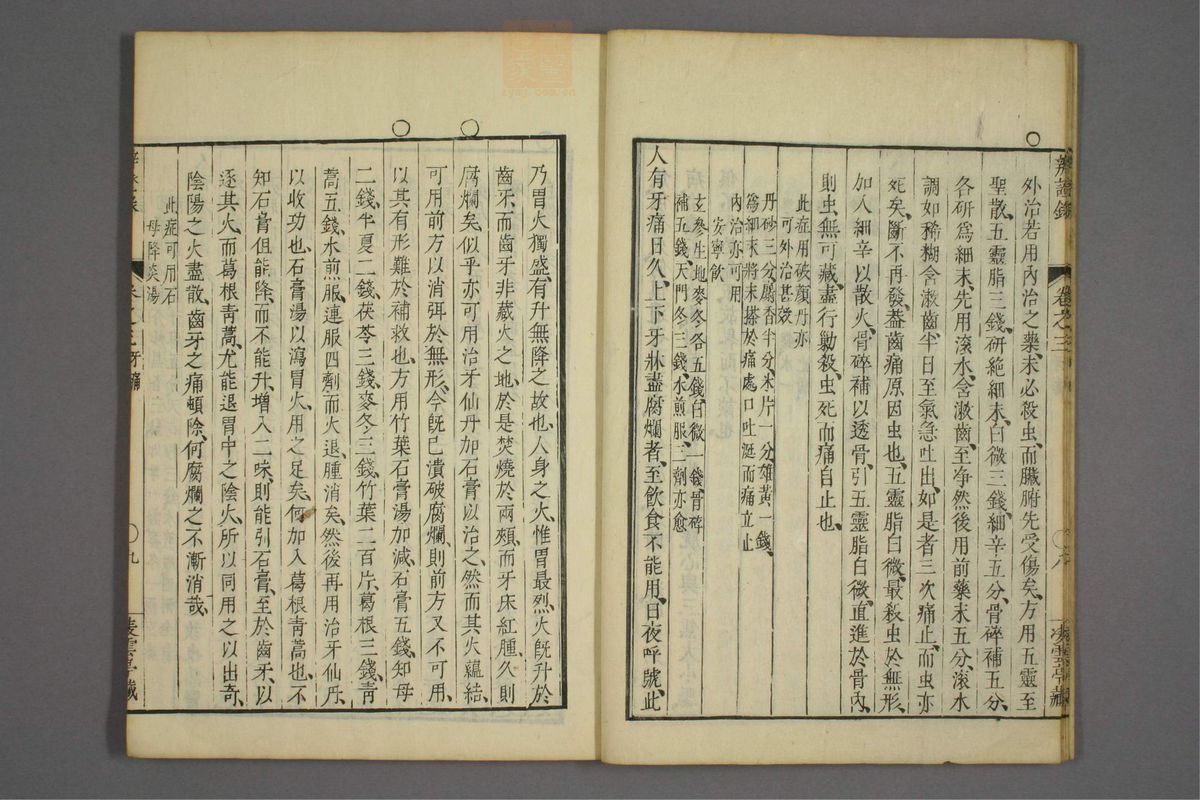 辨證錄 卷之三 〇八 凌雲亭藏
外治若用內治之藥、未必殺虫、而臟腑先受傷矣、方用五靈至
聖散、五靈脂三錢、研絶細末、白薇三錢、細辛五分、骨碎補五分、
各研爲細末、先用滾水含漱齒至净、然後用前藥末五分、滾水
調如稀糊、含漱齒半日、至氣急吐出、如是者三次、痛止、而虫亦
死矣、斷不再發、蓋齒痛原因虫也、五靈脂白薇、最殺虫於無形、
加入細辛以散火、骨碎補以透骨、引五靈脂白薇、直進於骨內、
則虫無可藏、盡行勦殺、虫死而痛自止也、
此症用破顔丹亦
可外治甚效
丹砂三分、麝香半分、氷片一分、雄黃一錢、
爲細末、將末搽於痛處、口吐涎而痛立止
內治亦可用
安寧飲
玄參生地麥冬各五錢、白薇一錢、骨碎
補五錢、天門冬三錢、水煎服、三劑亦愈
人有牙痛日久、上下牙牀盡腐爛者、至飲食不能用、日夜呼號、此
乃胃火獨盛、有升無降之故也、人身之火、惟胃最烈、火旣升於
齒牙、而齒牙非藏火之地、於是焚燒於兩頰、而牙床紅腫、久則
腐爛矣、似乎亦可用治牙仙丹加石膏以治之、然而其火蘊結、
可用前方以消弭於無形、今旣已潰破腐爛、則前方又不可用、
以其有形難於補救也、方用竹葉石膏湯加減、石膏五錢、知母
二錢、半夏二錢、茯苓三錢、麥冬三錢、竹葉二百片、葛根三錢、靑
蒿五錢、水煎服、連服四劑而火退、腫消矣、然後再用治牙仙丹、
以收功也、石膏湯以瀉胃火、用之足矣、何加入葛根靑蒿也、不
知石膏但能降、而不能升、增入二味、則能引石膏、至於齒牙、以
逐其火、而葛根靑蒿、尤能退胃中之陰火、所以同用之以出奇、
陰陽之火盡散、齒牙之痛頓除、何腐爛之不漸消哉、
此症可用石
母降炎湯
〇九